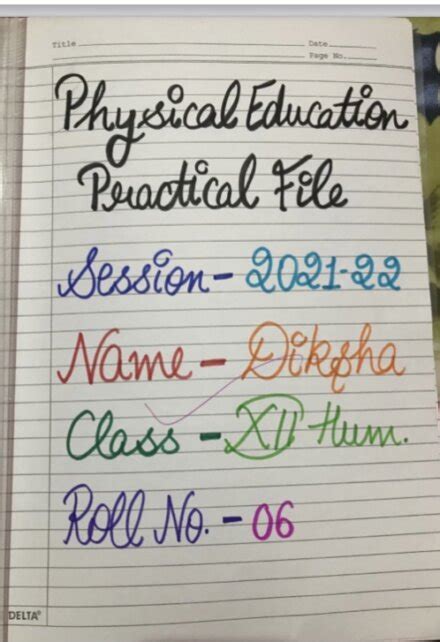 Title
Date
Page No.
Physical Education
Practical File
Session - 2021-22
Name - Diksha
Class - XII Hum.
Roll No. - 06
DELTA®